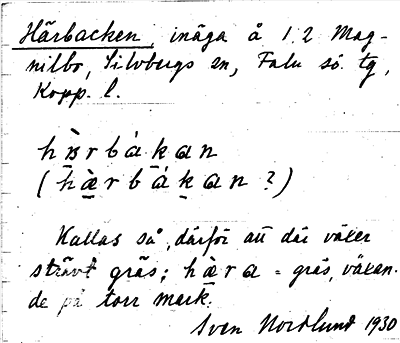 Härbacken, inäga å 1:2 Mag-
nilbo, Silvbergs sn, Falu sö. tg,
Kopp. l.
hæ̀rbákan
(hæ̀rbákan?)
Kallas så, därför att där växer
strävt gräs; hàra = gräs, växan-
de på torr mark.
Sven Nordlund 1930